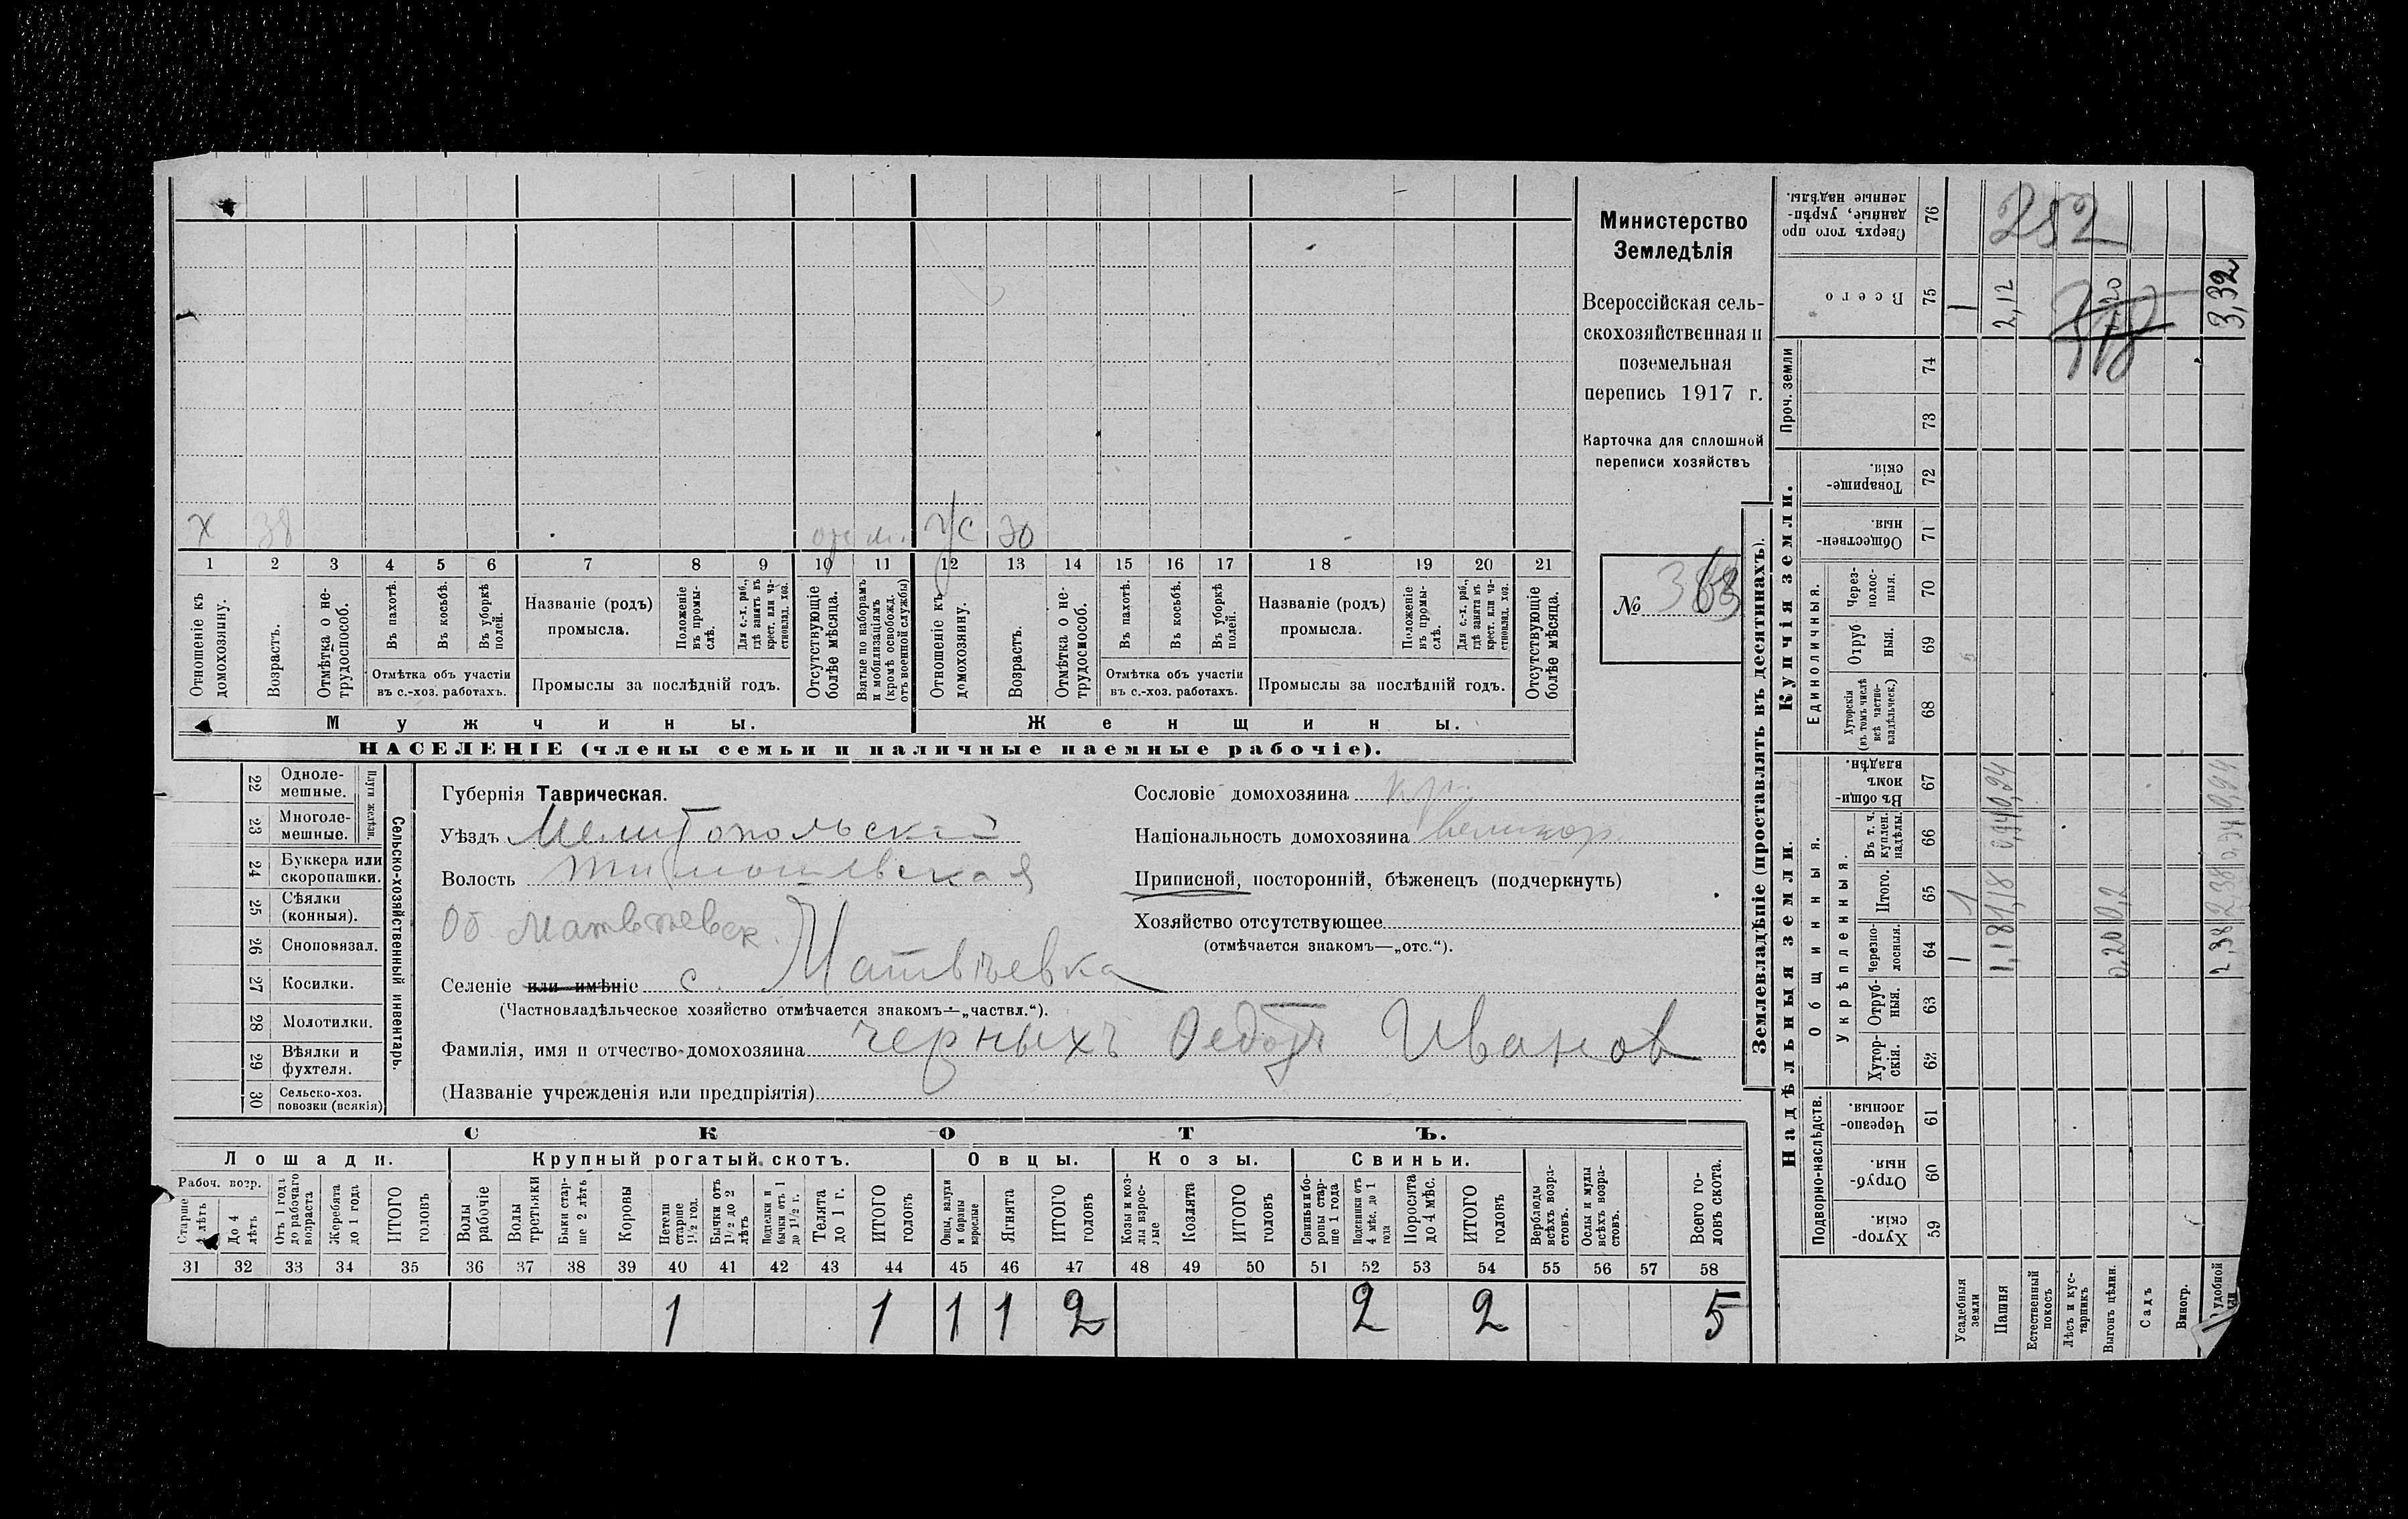 Министерство
Земледѣлія
Всероссійская сель-
скохозяйственная и
поземельная
перепись 1917 г.
Карточка для сплошной
переписи хозяйствъ
№ 363
х 38 ж 30
1 2 3 4 5 6 7 8 9 10 11 12 13 14 15 16 17 18 19 20 21
Отношеніе къ домохозяину.
Возрастъ.
Отмѣтка о не-трудоспособ.
Въ пахотѣ.
Въ косьбѣ.
Въ уборкѣ полей.
Отмѣтка объ участіи
въ с.-хоз. работахъ.
Названіе (родъ)
промысла.
Положеніе въ промы-слѣ.
Для с.-х. раб., гдѣ занятъ въ крест. или ча-стновлад. хоз.
Промыслы за послѣдній годъ.
Отсутствующіе болѣе мѣсяца.
Взятые по наборамъ и мобилизаціямъ (кромѣ освобожд. отъ военной службы)
Отношеніе къ домохозяину.
Возрастъ.
Отмѣтка о не-трудоспособ.
Въ пахотѣ.
Въ косьбѣ.
Въ уборкѣ полей.
Отмѣтка объ участіи
въ с.-хоз. работахъ.
Названіе (родъ)
промысла.
Положеніе въ промы-слѣ.
Для с.-х. раб., гдѣ занята въ крест. или ча-стновлад. хоз.
Промыслы за послѣдній годъ.
Отсутствующіе болѣе мѣсяца.
Мужчины.
Женщины.
НАСЕЛЕНІЕ (члены семьи и наличные наемные рабочіе).
22 Одноле-мешные.
23 Многоле-мешные.
Плуги желѣзн.
24 Буккера или скоропашки.
25 Сѣялки (конныя).
26 Сноповязал.
27 Косилки.
28 Молотилки.
29 Вѣялки и фухтеля.
30 Сельско-хоз. повозки (всякія)
Сельско-хозяйственный инвентарь.
Губернія Таврическая.
Уѣздъ Мелитопольскій
Волость Тимошевская
Об. Матвѣевск.
Селеніе или имѣніе с. Матвѣевка
(Частновладѣльческое хозяйство отмѣчается знакомъ—„частвл.“).
Фамилія, имя и отчество домохозяина Черныхъ Федотъ Иванов
(Названіе учрежденія или предпріятія)
Сословіе домохозяина кр.
Національность домохозяина великор.
Приписной, посторонній, бѣженецъ (подчеркнуть)
Хозяйство отсутствующее
(отмѣчается знакомъ—„отс.“).
СКОТЪ.
Лошади.
Крупный рогатый скотъ.
Овцы.
Козы.
Свиньи.
Рабоч. возр.
Старше 4 лѣтъ
До 4 лѣтъ
Отъ 1 года до рабочаго возраста
Жеребята до 1 года
ИТОГО головъ
Волы рабочіе
Волы третьяки
Быки стар-ше 2 лѣтъ
Коровы
Нетели старше 1½ год.
Бычки отъ 1½ до 2 лѣтъ
Подтелки и бычки отъ 1 до 1½ г.
Телята до 1 г.
ИТОГО головъ
Овцы, валухи и бараны взрослые
Ягнята
ИТОГО головъ
Козы и коз-лы взрос-лые
Козлята
ИТОГО головъ
Свиньи и бо-ровы стар-ше 1 года
Подсвинки отъ 4 мѣс. до 1 года
Поросята до 4 мѣс.
ИТОГО головъ
Верблюды всѣхъ возра-стовъ.
Ослы и мулы всѣхъ возра-стовъ.
Всего го-ловъ скота.
31 32 33 34 35 36 37 38 39 40 41 42 43 44 45 46 47 48 49 50 51 52 53 54 55 56 57 58
1 1 1 1 2 2 2 5
Землевладѣніе (проставлять въ десятинахъ).
Надѣльныя земли.
Купчія земли.
Проч. земли
Подворно-наслѣдств.
Общинныя.
Укрѣпленныя.
Единоличныя.
Хутор-скія. 59
Отруб-ныя. 60
Черезпо-лосныя. 61
Хутор-скія. 62
Отруб-ныя. 63
Черезпо-лосныя. 64
Итого. 65
Въ т. ч. куплен. надѣлы. 66
Въ общин-номъ владѣн. 67
Хуторскія (въ томъ числѣ всѣ частно-владѣльческ.) 68
Отруб-ныя. 69
Через-полос-ныя. 70
Обществен-ныя. 71
Товарище-скія. 72
73
74
Всего 75
Сверхъ того про-данные, укрѣп-ленные надѣлы. 76
Усадебныя земли 1 1 1
Пашня 1,18 1,18 0,94 0,94 2,12
Естественный покосъ
Лѣсъ и кус-тарникъ
Выгонъ цѣлин. 0,20 0,2
Садъ
Виногр.
удобной 2,38 2,38 0,94 0,94 3,32
252